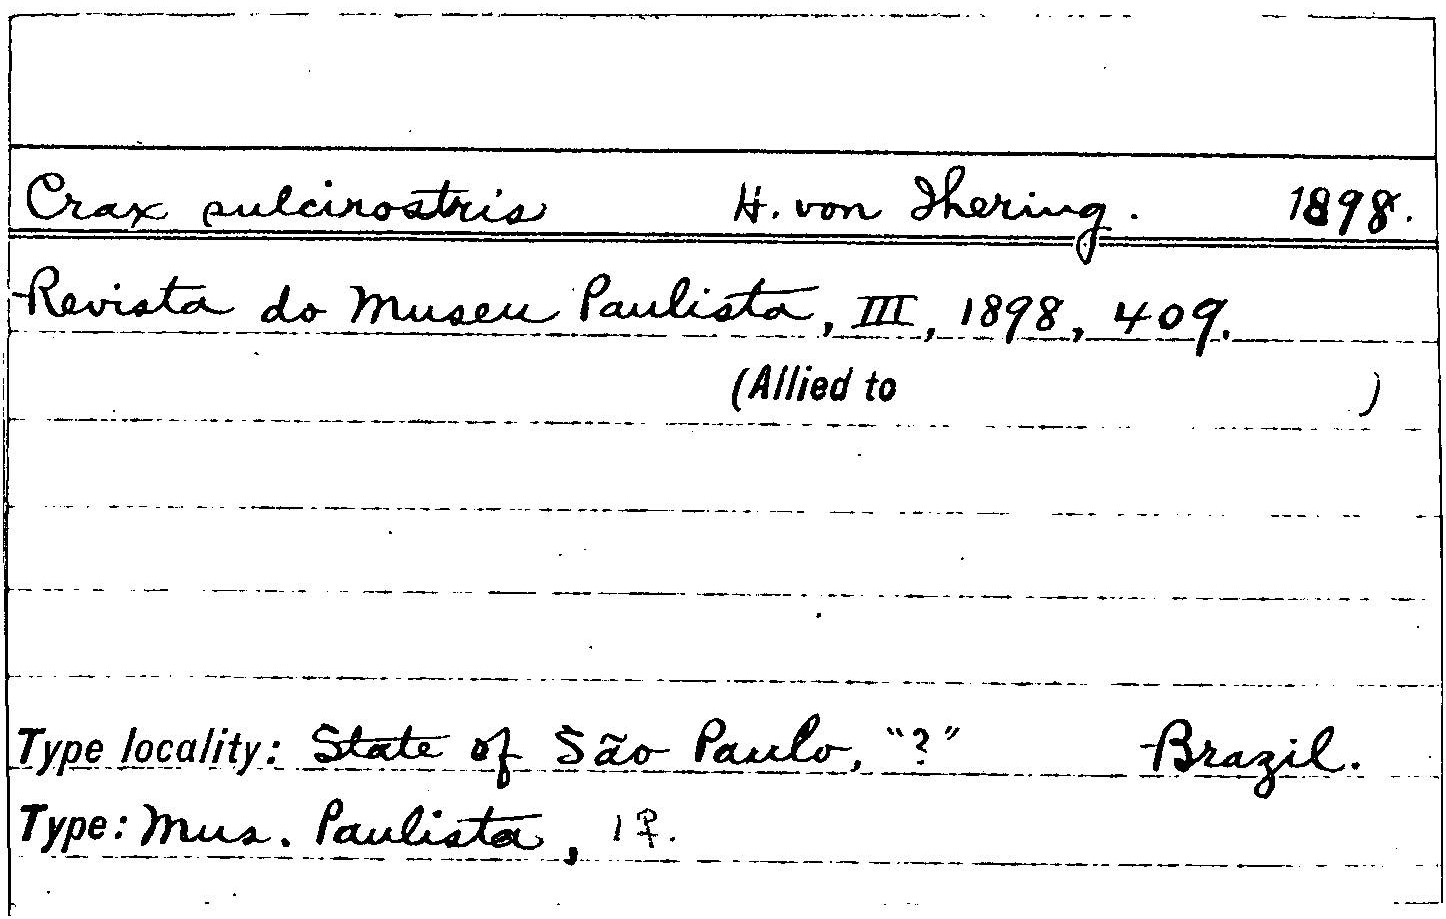 Crax sulcirostris H. von Ihering. 1898.
Revista do Museu Paulista, III, 1898, 409.
(Allied to )
Type locality: State of São Paulo, "?" Brazil.
Type: Mus. Paulista, 1♀.